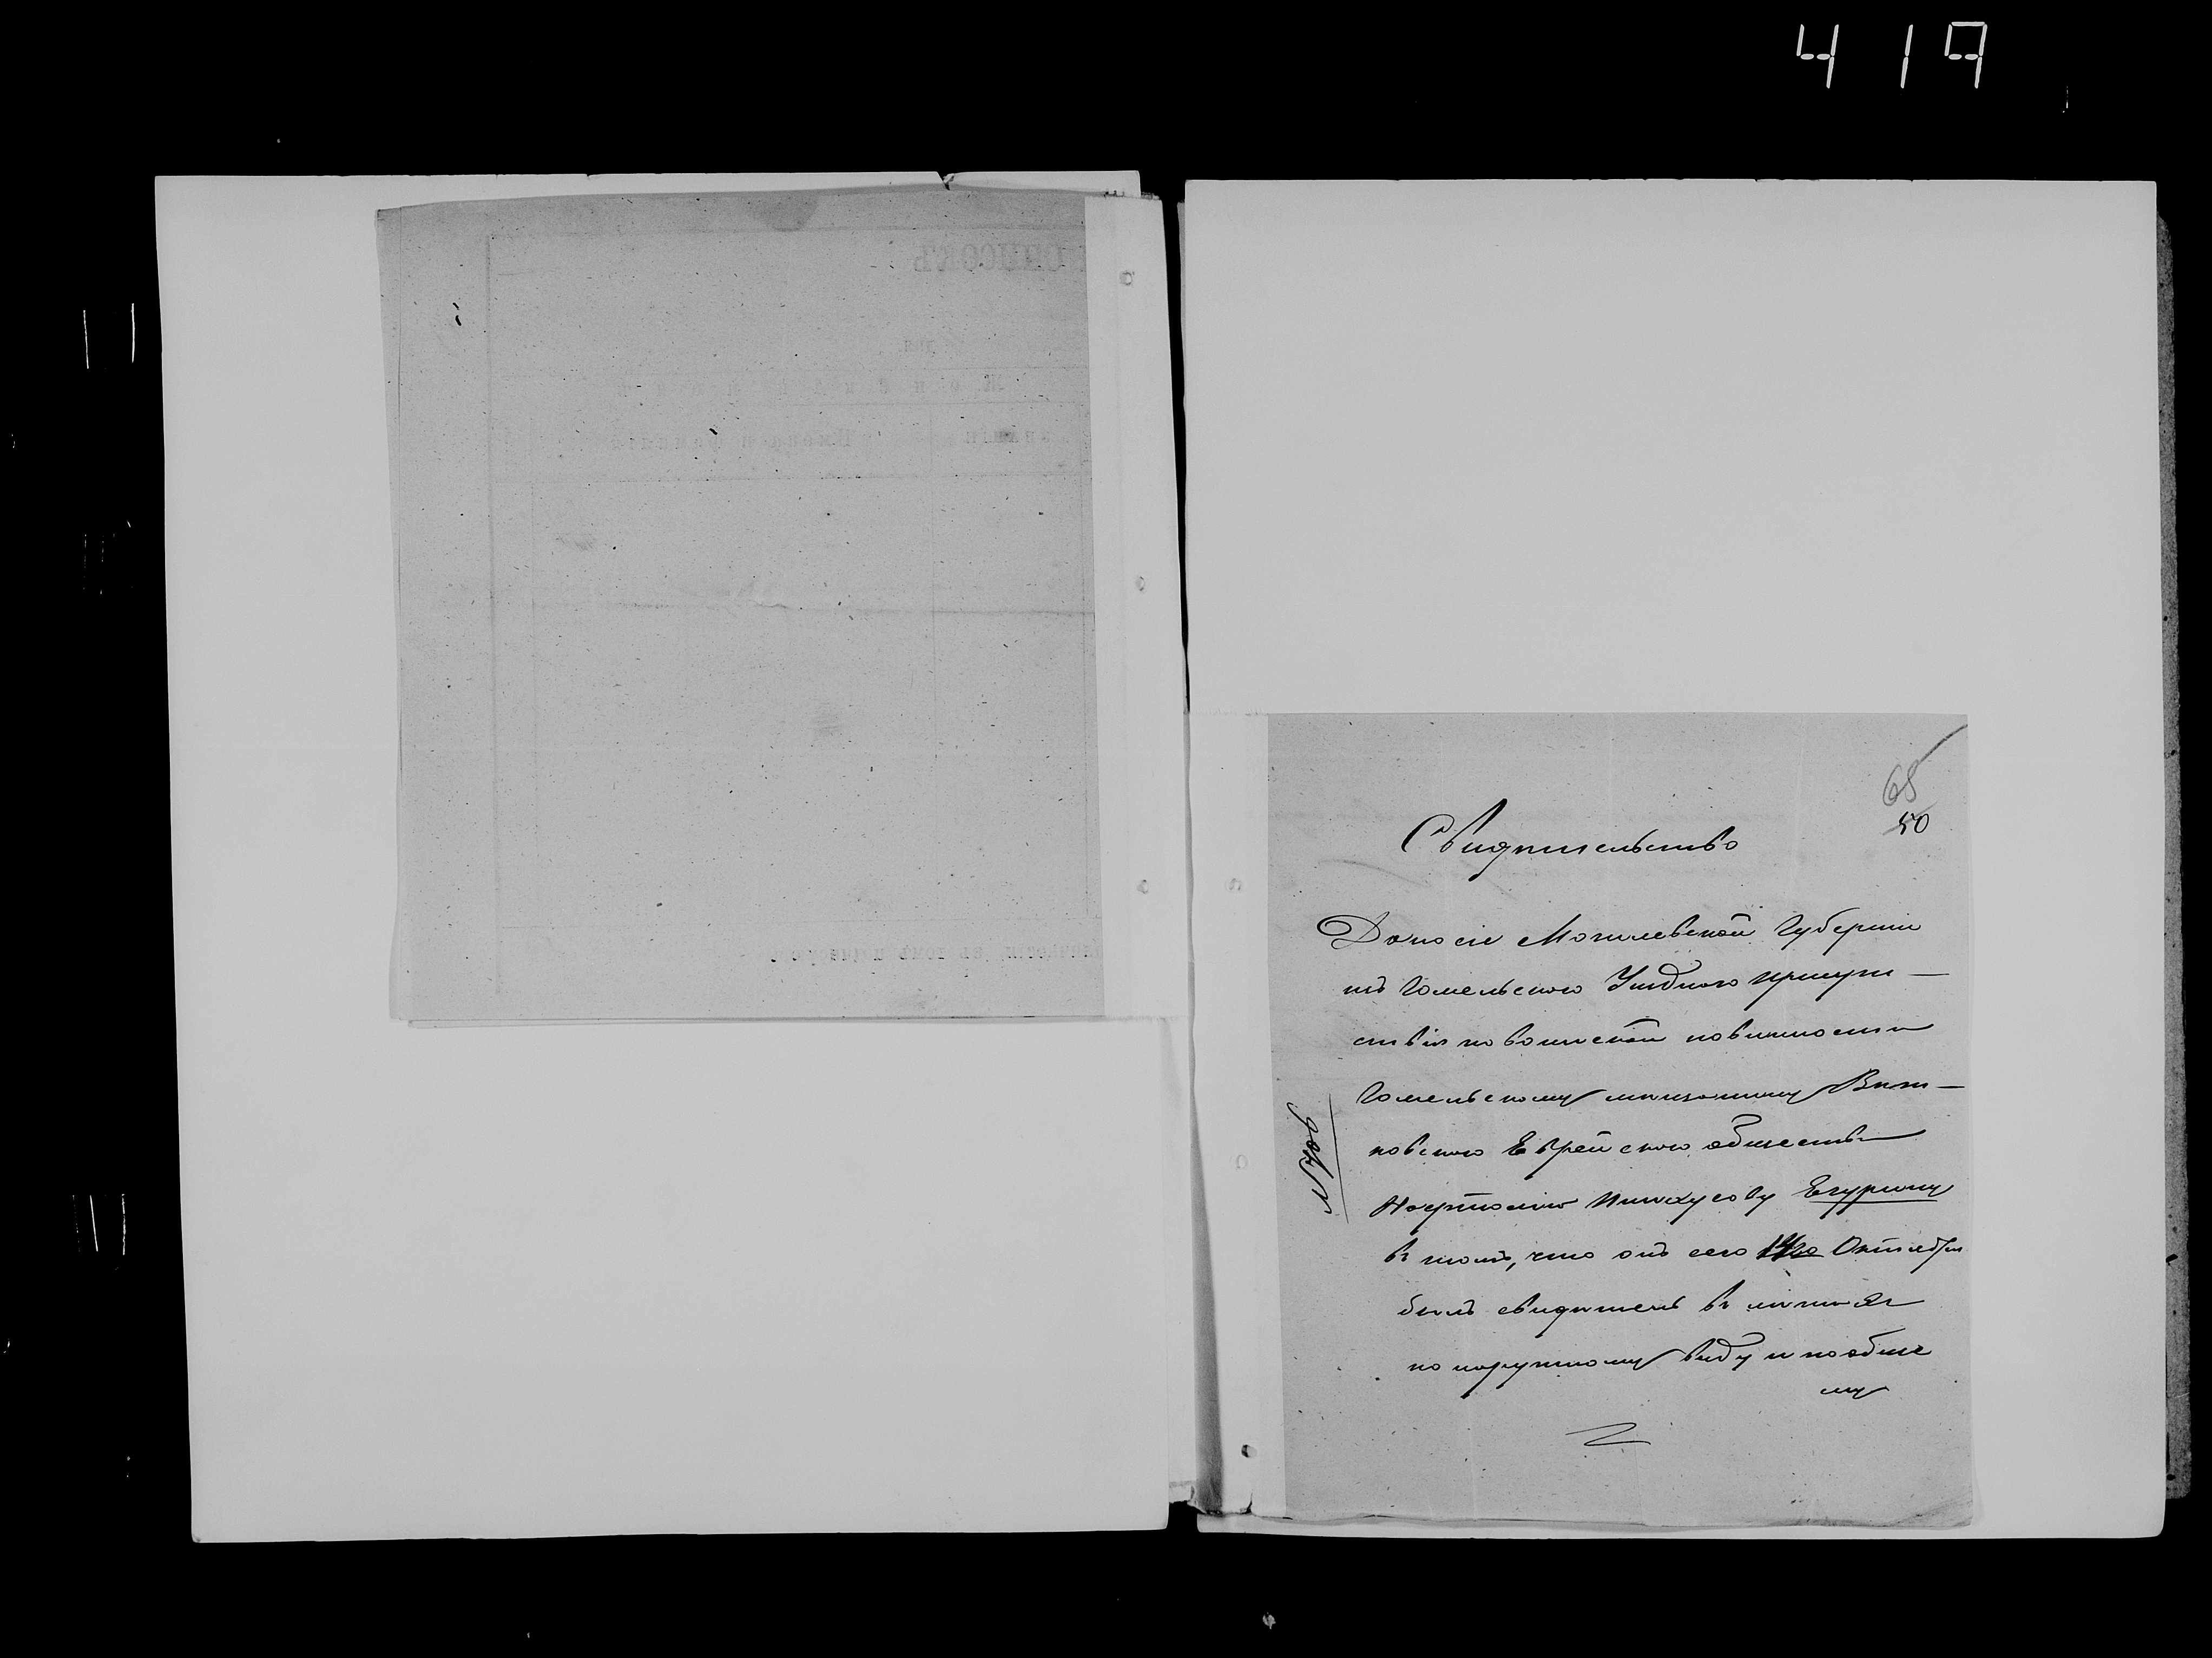 419
СПИСОКЪ
68
50
Свидѣтельство
Дано сіе Могилевской Губерніи
изъ Гомельского Уѣздного присут-
ствія по воинской повинности
Гомельскому мѣщанину Вѣт-
ковского Еврейского общества
Пинхусову Егурину
въ томъ, что онъ сего 14го Октября
былъ свидѣтель въ лѣтахъ
по наружному виду и по обще
му
№ 706